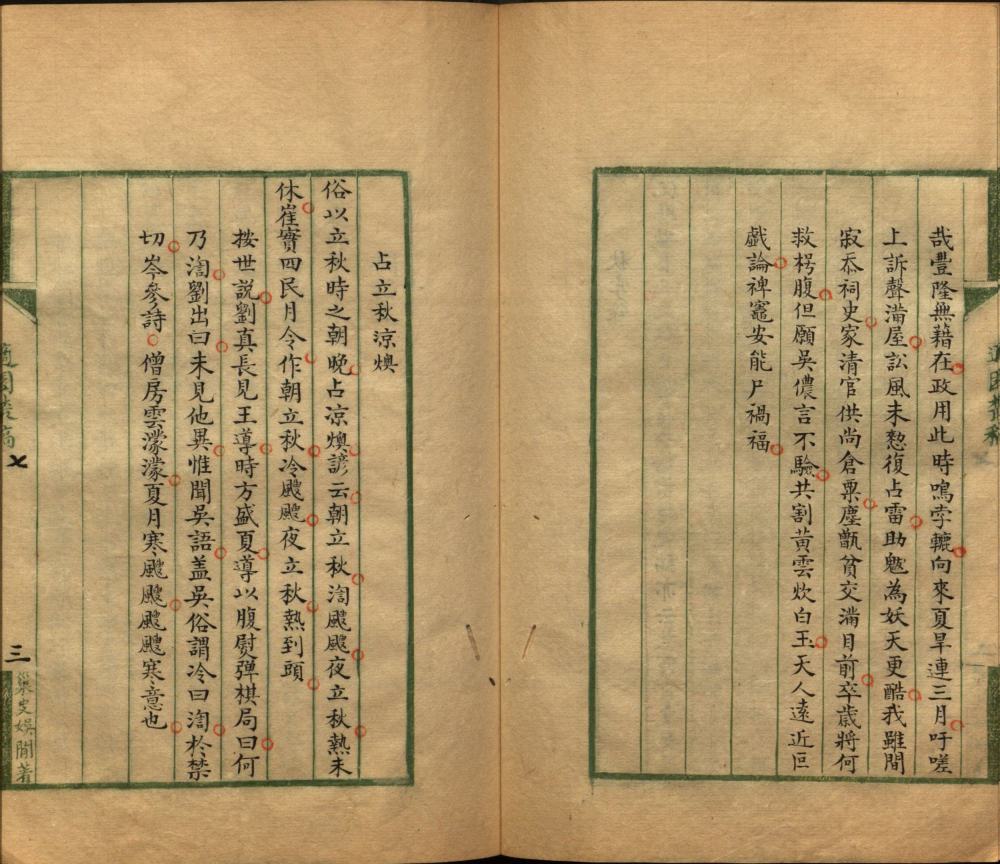 哉豐隆無藉在政用此時鳴雩轆向來夏旱連三月吁嗟
上訴聲滿屋訟風未愸復占雷助魃為妖天更酷我雖閒
寂忝祠史家清官供尚倉粟塵甑貧交滿目前卒歲將何
救枵腹但願吳儂言不驗共割黃雲炊白玉天人遠近叵
戲論裨竈安能尸禍福
占立秋涼燠
俗以立秋時之朝晚占凉燠諺云朝立秋渹飂飂夜立秋熱未
休崔寔四民月令作朝立秋冷飂飂夜立秋熱到頭
按世說劉真長見王導時方盛夏導以腹熨彈棋局曰何
乃渹劉出曰未見他異惟聞吳語盖吳俗謂冷曰渹於禁
切岑參詩僧房雲濛濛夏月寒飂飂飂寒意也
適園叢稿
三
巢史娛閒著